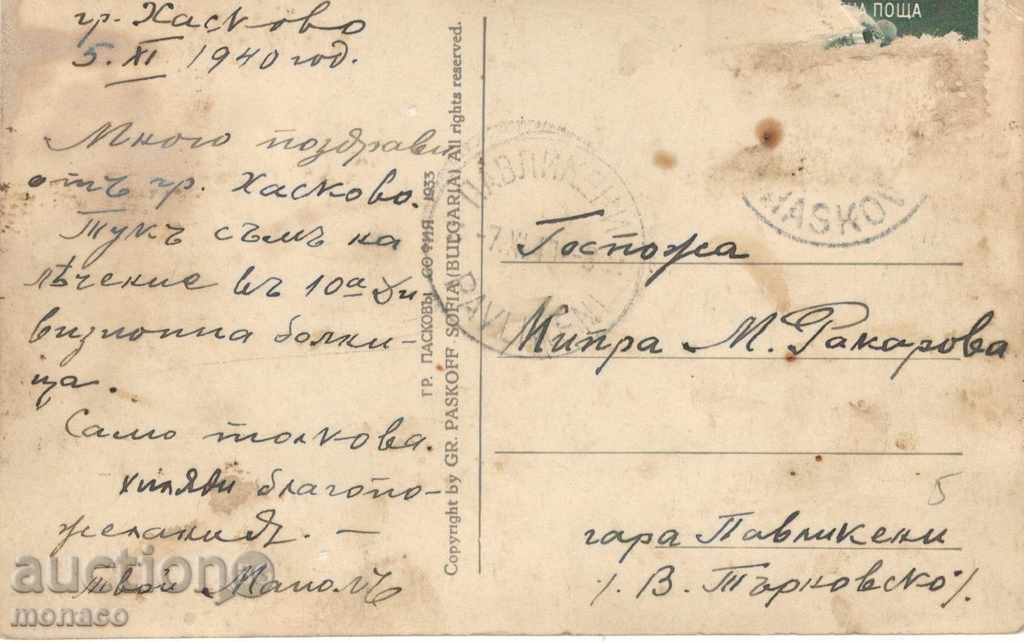 гр. Хасково
5. XI 1940 год.
Много поздрави
отъ гр. Хасково.
Тукъ съмъ на
лѣчение въ 10а Ди
визионна болни-
ца.
Само толкова.
хиляди благопо-
желания. —
твой Манолъ
ГР. ПАСКОВЪ СОФИЯ 1933
Copyright by GR. PASKOFF SOFIA (BULGARIA) All rights reserved.
ПОЩА
ПАВЛИКЕНИ
PAVLIKENI
HASKOV
Госпожа
Митра М. Ракарова
5
гара Павликени
/. В. Търновско/.
auction
monaco